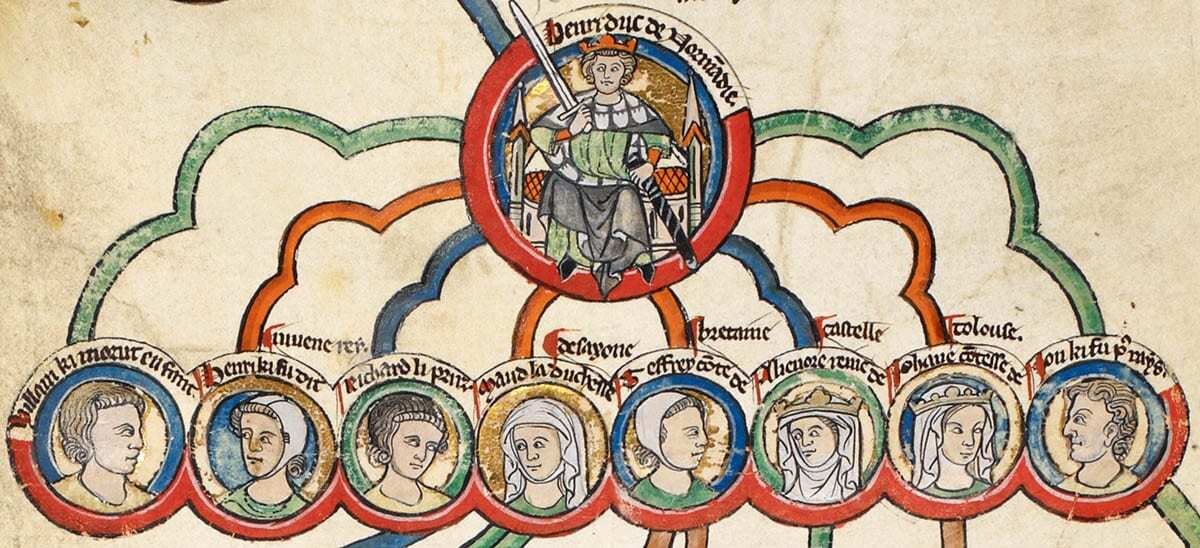 Henri duc de Normādie.
Willam ki morut en
Henri ki fu dit
iuvene rey.
Richard li
Maud la duchesse
de saxone
Geffrey cōte de
bretaine
Alienore reine de
castelle
Iohane cōtesse de
tolouse.
Ion ki fu pͥ rays.